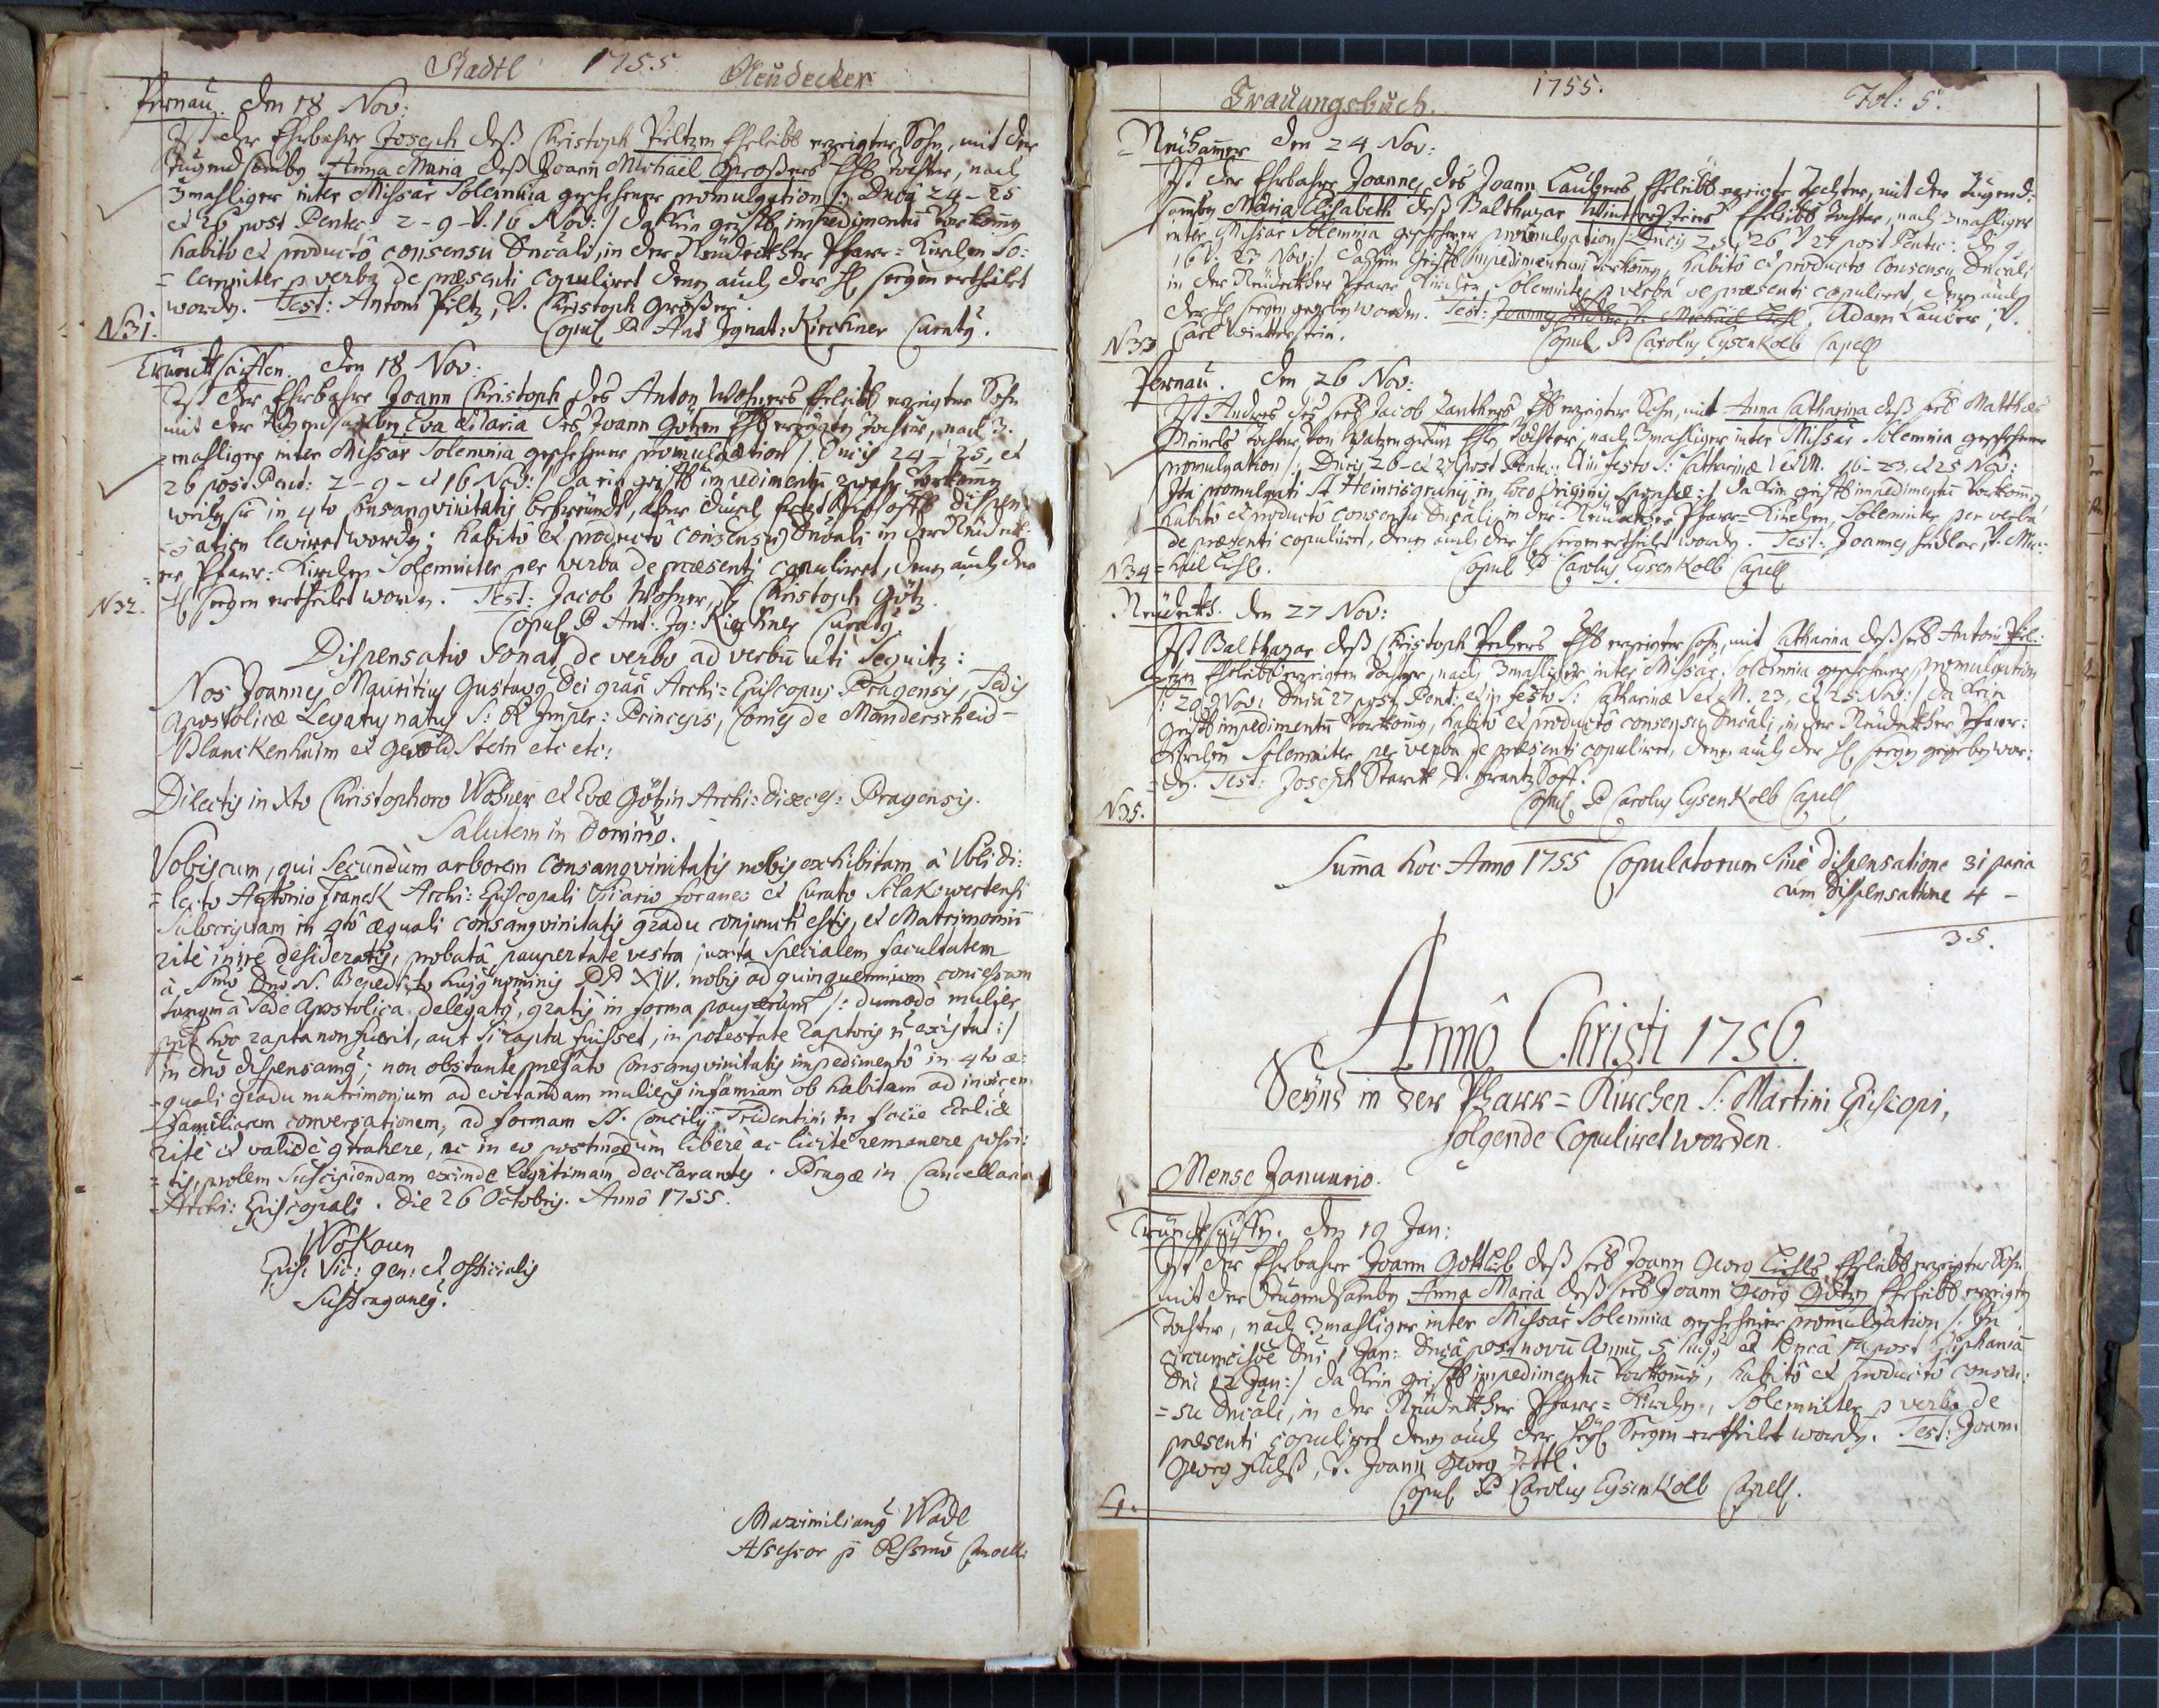 Stadtl 1755 Neudecker
Pernau. den 18 Nov:
Ist der Ehrbahre Joseph deß Christoph Piltzen Ehrleibl erzeigter Sohn, mit der
tugendsamben Anna Maria deß Joann Michäel Großers Ehl Tochter, nach
3mahliger inter Missar Solemnia geschehener promulgation /: Dnicâ 24 - 25
et 26 post Pentec: 2 - 9 - V. 16 Nov: / da kein geistl impedimentū vorkom̄en
habito et productô consensu Dn̄cali, in der Neüdeckher Pfarr= Kirchen So:
= lemniter p verba de præsenti copuliret denen auch der Hl seegen ertheilet
worden. Test: Antoni Piltz, V. Christoph Großer.
N 31. Copul P Ant Ignat: Kirchner Curatq.
Trünckhsaiffen. den 18 Nov:
Ist der Ehrbahre Joann Christoph des Anton Wohners Ehrleibl erzeigter Sohn
mit der Tugendsamben Eva Maria des Joann Götzen Ehl erzeigten Tochter, nach 3.
mahliger inter Missar Solemnia geschehener promulgation /. Dn̄cis 24 - 25, et
26 post Pent: 2 - 9 - et 16 Nov: / da ein geistl impedimentū zwahr vorkom̄en
weilen sie in 4to Consangvinitatis befreündt, aber durch Ertzbischoffl Dispen:
= sation levieret worden: habitô et productô consensu Dn̄cali in der Neüdeck:
= er Pfarr= Kirchen Solemniter per verba de præsenti copuliret, denen auch der
N 32. Hl seegen ertheilet worden. Test: Jacob Wohner, V Christoph Götz.
Copul P Ant: Ig: Kirchner Curatq
Dispensatio sonat de verbo ad verbū uti Sequitr:
Nos Joannes Mauritius Gustavq Dei grāa Archi= Episcopus Pragensis, Sedis
Apostolicæ Legatus natus S: R Imper: Princeps, Comes de Manderscheid -
Blanckenhaim et Geroldstein etc etc:
Dilectis in Xto Christophoro Wohner et Evæ Götzin Archi= diæces: Pragensis.
Salutem in Domino.
Vobiscum, qui Secundùm arborem consangvinitatis nobis exhibitam à Nobis di:
= lecto Antonio Franck Archi= Episcopali Vicario foraneo et Curato Schlakowertensi
Subscriptam in 4tô æquali consangvinitatis gradu conjuncti estis, et Matrimoniū
ritè inire desideratis, probatâ paupertate vestra juxta Specialem facultatem
à Smo Dno N. Benedicto hujq nominis PP XIV. nobis ad quinquennium concessam
tanqm à Sede Apostolica delegatq, gratis in forma pauperum /: dumodò mulier
pter hoc rapta non fuerit, aut Si rapta fuisset, in potestate raptoris n̄ existat :/
in dn̄o dispensamq; non obstante præfato Consangvinitatis impedimentô in 4to æ:
= quali gradu matrimonium ad evitandam mulieris infamiam ob habitam ad invicem
familiarem conversationem, ad formam SS. Concilij Tridentini in facie Ecclīæ
ritè et validè q̄trahere, ac in eo postmodùm liberè ac licitè remanere possi:
= tis, prolem suscipiendam exinde legitimam declarantes. Pragæ in Cancellaria
Archi: Episcopali. Die 26 Octobris. Annô 1755.
Wokaun
Episc Vic: gen: et officialis
Suffraganeq.
Maximilianq Wadl
Assessor p Rssmo Cancell:
Trauungsbuch. 1755. Fol: 5.
= Neühamer den 24 Nov:
Ist der Ehrbahre Joannes des Joann Laubers Ehrleibl erzeigte Tochter, mit der Tugend:
samben Maria Elisabeth deß Balthazar Wintersteins Ehrleibl Tochter, nach 3mahliger
inter Missar Solemnia geschehener promulgation /. Dn̄cis 25, 26 V 27 post Pentec: den 9
16 V. 23 Nov: /. da kein Geistl impedimentum vorkom̄en, habitô et producto Consensu Dn̄cali
in der Neüdeckher Pfarr Kirchen Solemniter p verba de præsenti copuliret, denen auch
der Hl seegen gegeben worden. Test: Adam Lauber, V.
N 33 Carl Winterstein. Copul P Carolus Eysenkolb Capell
Pernau. den 26 Nov:
Ist Andres des seel Jacob Zantners Ehl erzeigter Sohn, mit Anna Catharina deß seel Matthes
Meinels Tochter von Watzengrün Ehl Tochter, nach 3mahliger inter Missar Solemnia geschehener
promulgation /. Dn̄cis 26 - et 27 post Pentec: et in festo S: Catharinæ V et M. 16 - 23, et 25 Nov:
Ita promulgati st Heinrisgrunij in loco Originis Sponsæ :/ da kein geistl impedimentū vorkom̄en
habitô et productô consensu Dn̄cali in der Neüdeckher Pfarr= Kirchen, Solemniter per verba
de præsenti copuliret, denen auch der Hl seegen ertheilet worden. Test: Joannes Fidler, V. Mi:
N 34 = chäel Lichl. Copul P Carolus Eysenkolb Capell
Neüdeckh. den 27 Nov:
Ist Balthazar deß Christoph Pechers Ehl erzeigter Sohn, mit Catharina deß seel Antoni Pil:
= tzen Ehrleibl erzeigten Tochter, nach 3mahliger inter Missar: Solemnia geschehener promulgation
Dn̄câ 27 post Pent: et in festo S: Catharinæ V et M. 23, et 25 Nov: / da kein
geistl impedimentū vorkom̄en, habitô et productô consensu Dn̄cali, in der Neüdeckher Pfarr:
Kirchen Solemniter per verba de præsenti copuliret, denen auch der Hl seegen gegeben wor:
= den. Test: Joseph Starck V. Frantz Hoff.
N 35. Copul P Carolus Eysenkolb Capell
Sum̄a hoc Anno 1755 Copulatorum Sinè dispensatione 31 paria
cum Dispensatione 4 -
35.
Annô Christi 1756.
Seynd in der Pfarr= Kirchen S: Martini Episcopi,
folgende Copuliret worden.
Mense Januario.
Trünckhsaiffen. den 19 Jan:
Ist der Ehrbahre Joann Gottlieb deß seel Joann Georg Lichls Ehrleibl erzeigter Sohn
mit der Tugendsamben Anna Maria deß seel Joann Georg Götzen Ehrleibl erzeigten
Tochter, nach 3mahliger inter Missar Solemnia geschehener promulgation /. In
circumcisōe Dn̄i 1 Jan: Dn̄câ post novū Annū 5 hujq et Dn̄câ 1 post Epiphaniā
Dn̄i 12 Jan: / da kein geistl impedimentū vorkom̄en, habitô et productô consen:
= su Dn̄cali, in der Neüdeckher Pfarr= Kirchen, Solemniter p verba de
præsenti copuliret denen auch der heyl Seegen ertheilet worden. Test: Joann
Georg Fuchß, V. Joann Georg Zettl.
1. Copul P Carolus Eysenkolb Capell.